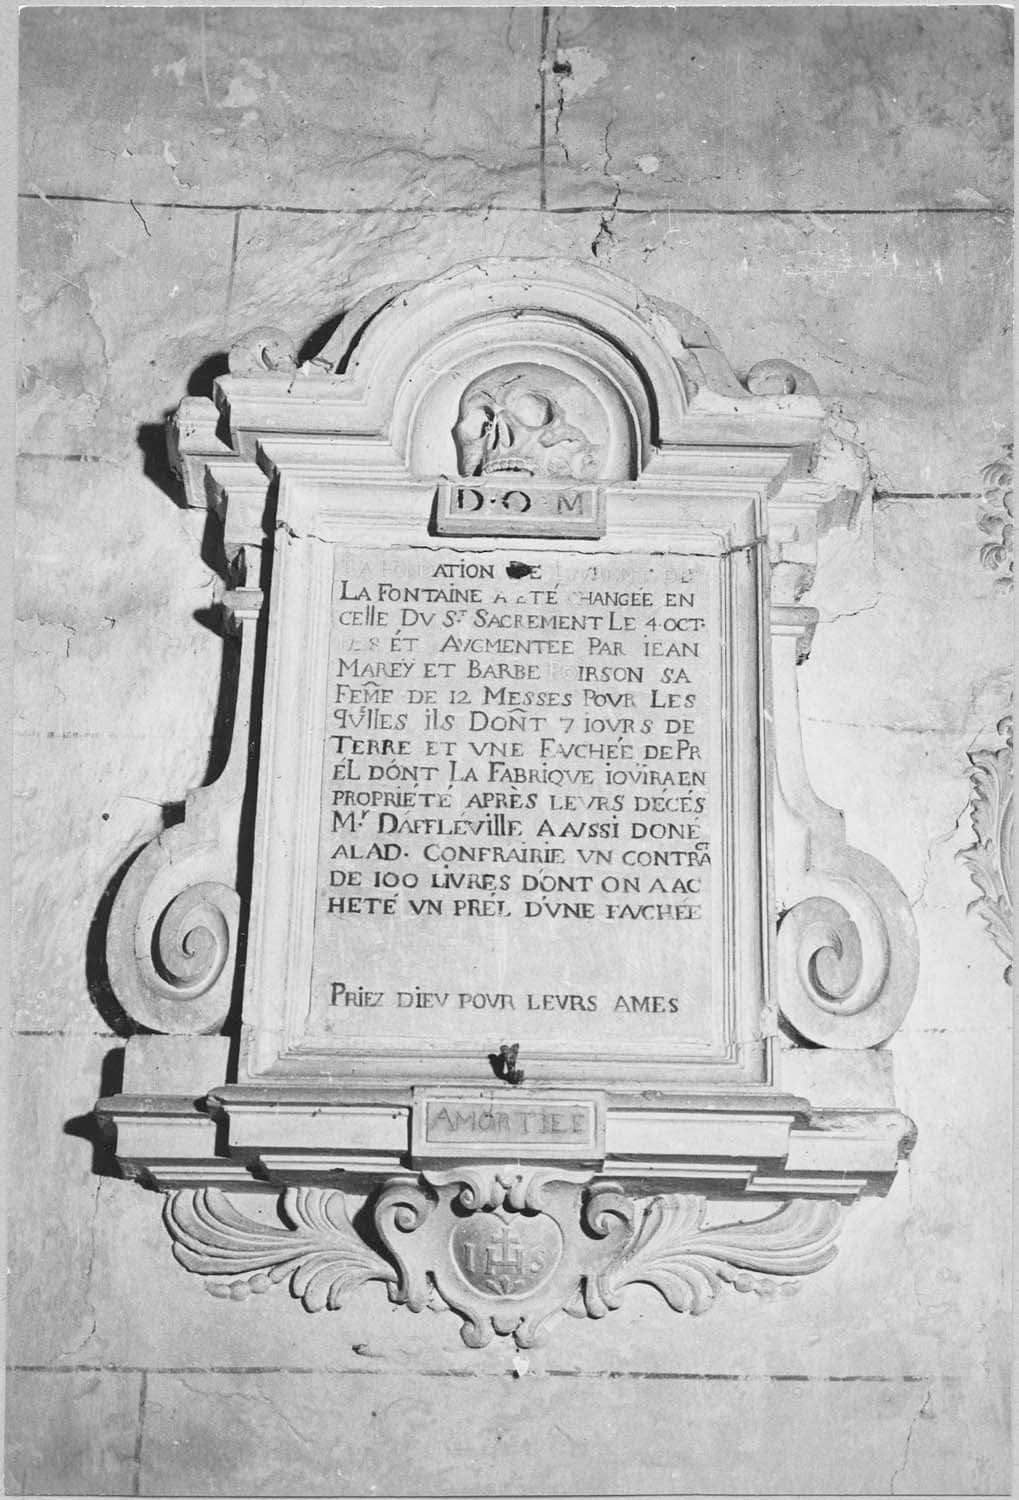 D·O·M
LA FONDATION DE
LA FONTAINE A ETÉ CHANGÉE EN
CELLE DV S.T SACREMENT LE 4 OCT.
ÉT AVGMENTEE PAR IEAN
MAREY ET BARBE POIRSON SA
FEM̃E DE 12 MESSES POVR LES
QV'ILLES ILS DOÑT 7 IOVRS DE
TERRE ET VNE FAVCHÉE DE PR
ÉL DÓNT LA FABRIQVE IOVÏRA EN
PROPRIÉTÉ APRÈS LEVRS DÉCÉS
M.R DAFFLÉVILLE A AVSSI DONÉ
A LAD. CONFRAIRIE VN CONTRACT
DE 100 LIVRES D'ONT ON A AC
HETÉ VN PRÉL D'VNE FAVCHÉE
PRIEZ DIEV POVR LEVRS AMES
AMORTIEE
IHS